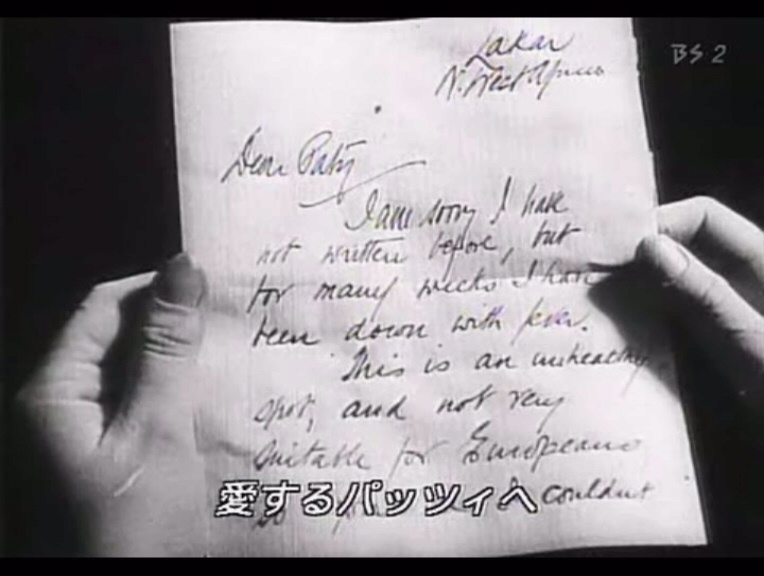 BS 2
Lakar
N. West Africa
Dear Patsy
I am sorry I have
not written before, but
for many weeks I have
been down with fever.
This is an unhealthy
spot, and not very
suitable for Europeans
couldnt
愛するパッツィへ